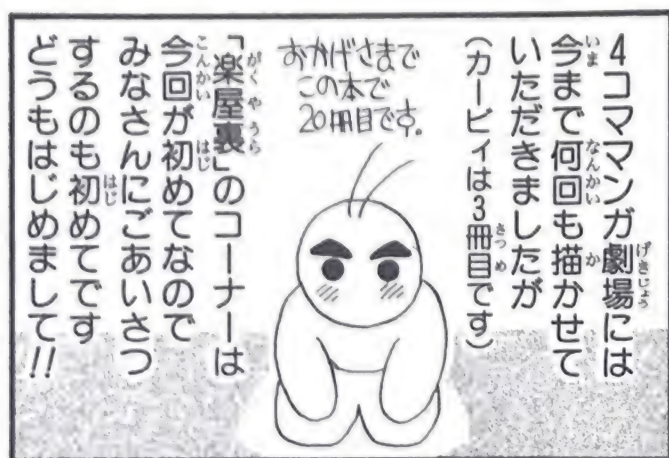 4コママンガ劇場には
今まで何回も描かせて
いただきましたが
(カービィは3冊目です)
おかげさまで
この本で
20冊目です。
「楽屋裏」のコーナーは
今回が初めてなので
みなさんにごあいさつ
するのも初めてです
どうもはじめまして!!